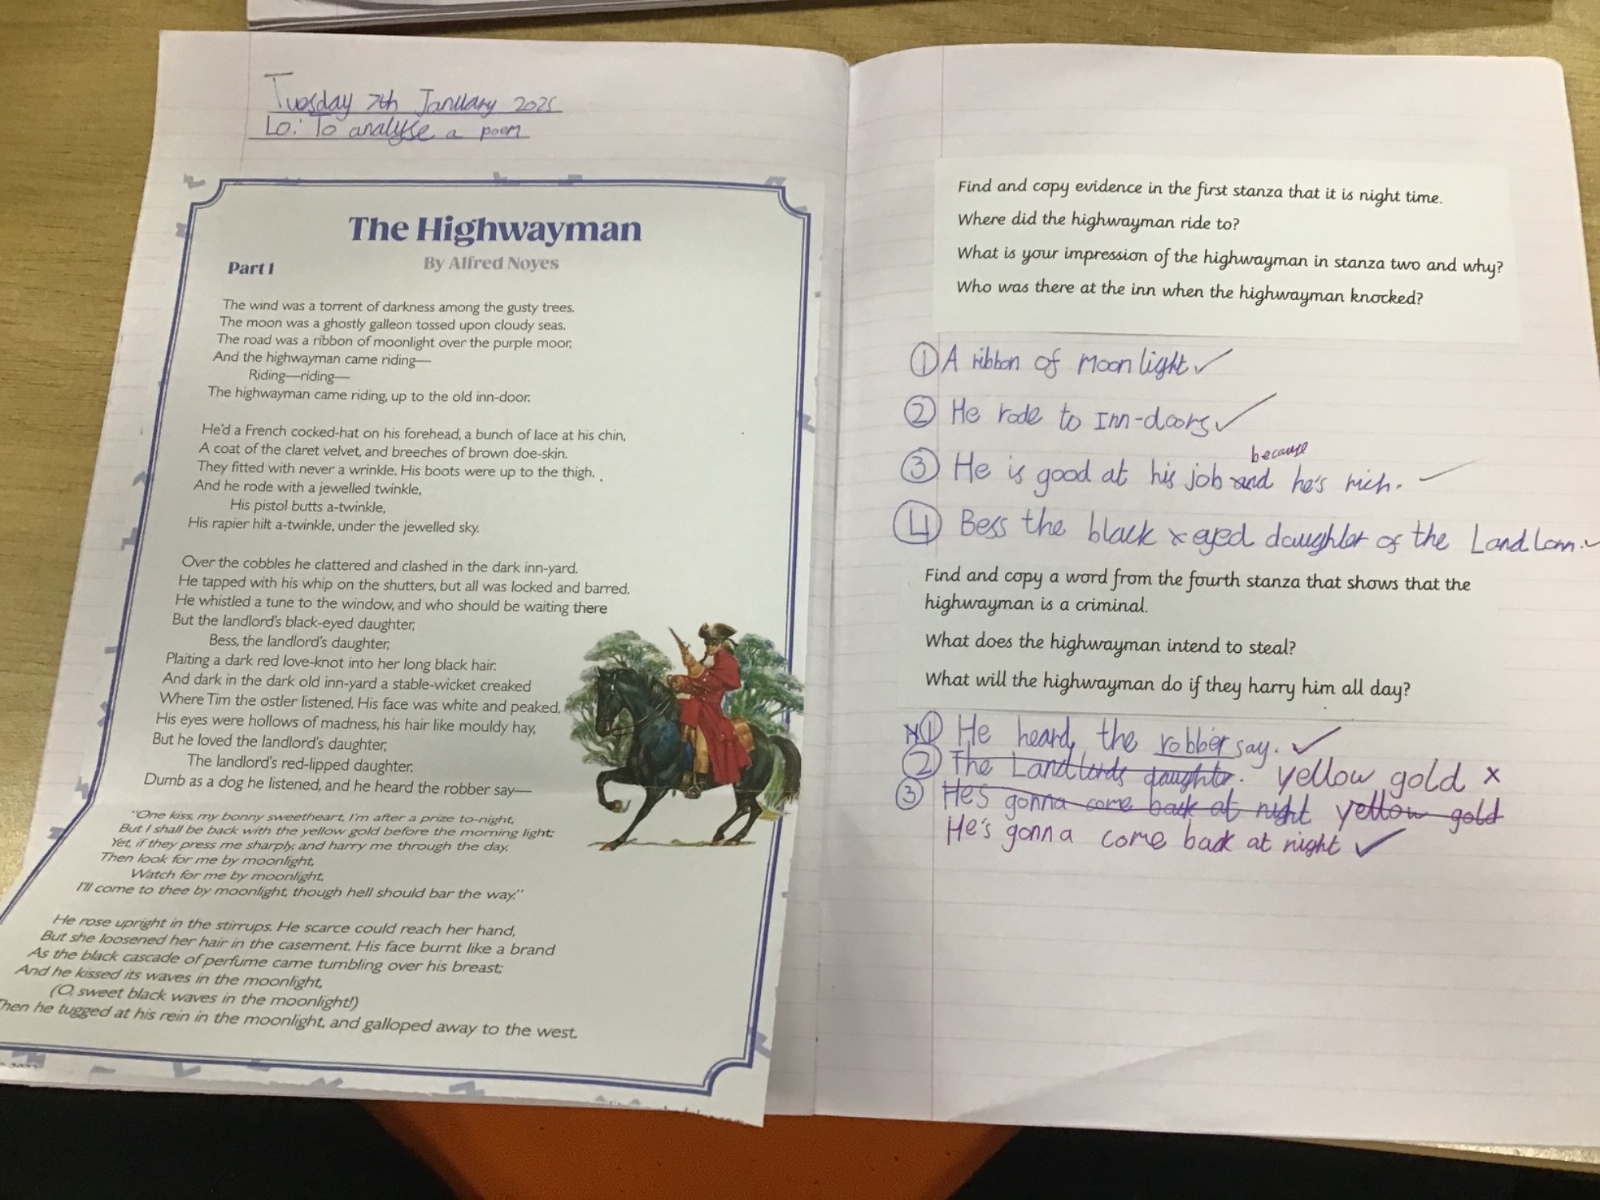 Tuesday 7th January 2025
Lo: To analyse a poem
The Highwayman
By Alfred Noyes
Part 1
The wind was a torrent of darkness among the gusty trees.
The moon was a ghostly galleon tossed upon cloudy seas.
The road was a ribbon of moonlight over the purple moor,
And the highwayman came riding—
Riding—riding—
The highwayman came riding, up to the old inn-door.
He'd a French cocked-hat on his forehead, a bunch of lace at his chin,
A coat of the claret velvet, and breeches of brown doe-skin.
They fitted with never a wrinkle. His boots were up to the thigh.
And he rode with a jewelled twinkle,
His pistol butts a-twinkle,
His rapier hilt a-twinkle, under the jewelled sky.
Over the cobbles he clattered and clashed in the dark inn-yard.
He tapped with his whip on the shutters, but all was locked and barred.
He whistled a tune to the window, and who should be waiting there
But the landlord's black-eyed daughter,
Bess, the landlord's daughter,
Plaiting a dark red love-knot into her long black hair.
And dark in the dark old inn-yard a stable-wicket creaked
Where Tim the ostler listened. His face was white and peaked.
His eyes were hollows of madness, his hair like mouldy hay,
But he loved the landlord's daughter,
The landlord's red-lipped daughter.
Dumb as a dog he listened, and he heard the robber say—
"One kiss, my bonny sweetheart, I'm after a prize to-night,
But I shall be back with the yellow gold before the morning light;
Yet, if they press me sharply, and harry me through the day,
Then look for me by moonlight,
Watch for me by moonlight,
I'll come to thee by moonlight, though hell should bar the way."
He rose upright in the stirrups. He scarce could reach her hand,
But she loosened her hair in the casement. His face burnt like a brand
As the black cascade of perfume came tumbling over his breast;
And he kissed its waves in the moonlight,
(O, sweet black waves in the moonlight!)
Then he tugged at his rein in the moonlight, and galloped away to the west.
Find and copy evidence in the first stanza that it is night time.
Where did the highwayman ride to?
What is your impression of the highwayman in stanza two and why?
Who was there at the inn when the highwayman knocked?
1 A ribbon of Moon light
2 He rode to Inn-doors
because
3 He is good at his job and he's rich.
4 Bess the black x eyed daughter of the
Find and copy a word from the fourth stanza that shows that the
highwayman is a criminal.
What does the highwayman intend to steal?
What will the highwayman do if they harry him all day?
1 He heard, the robber say.
2 The Landlords daughter. yellow gold x
3 He's gonna come back at night yellow gold
He's gonna come back at night